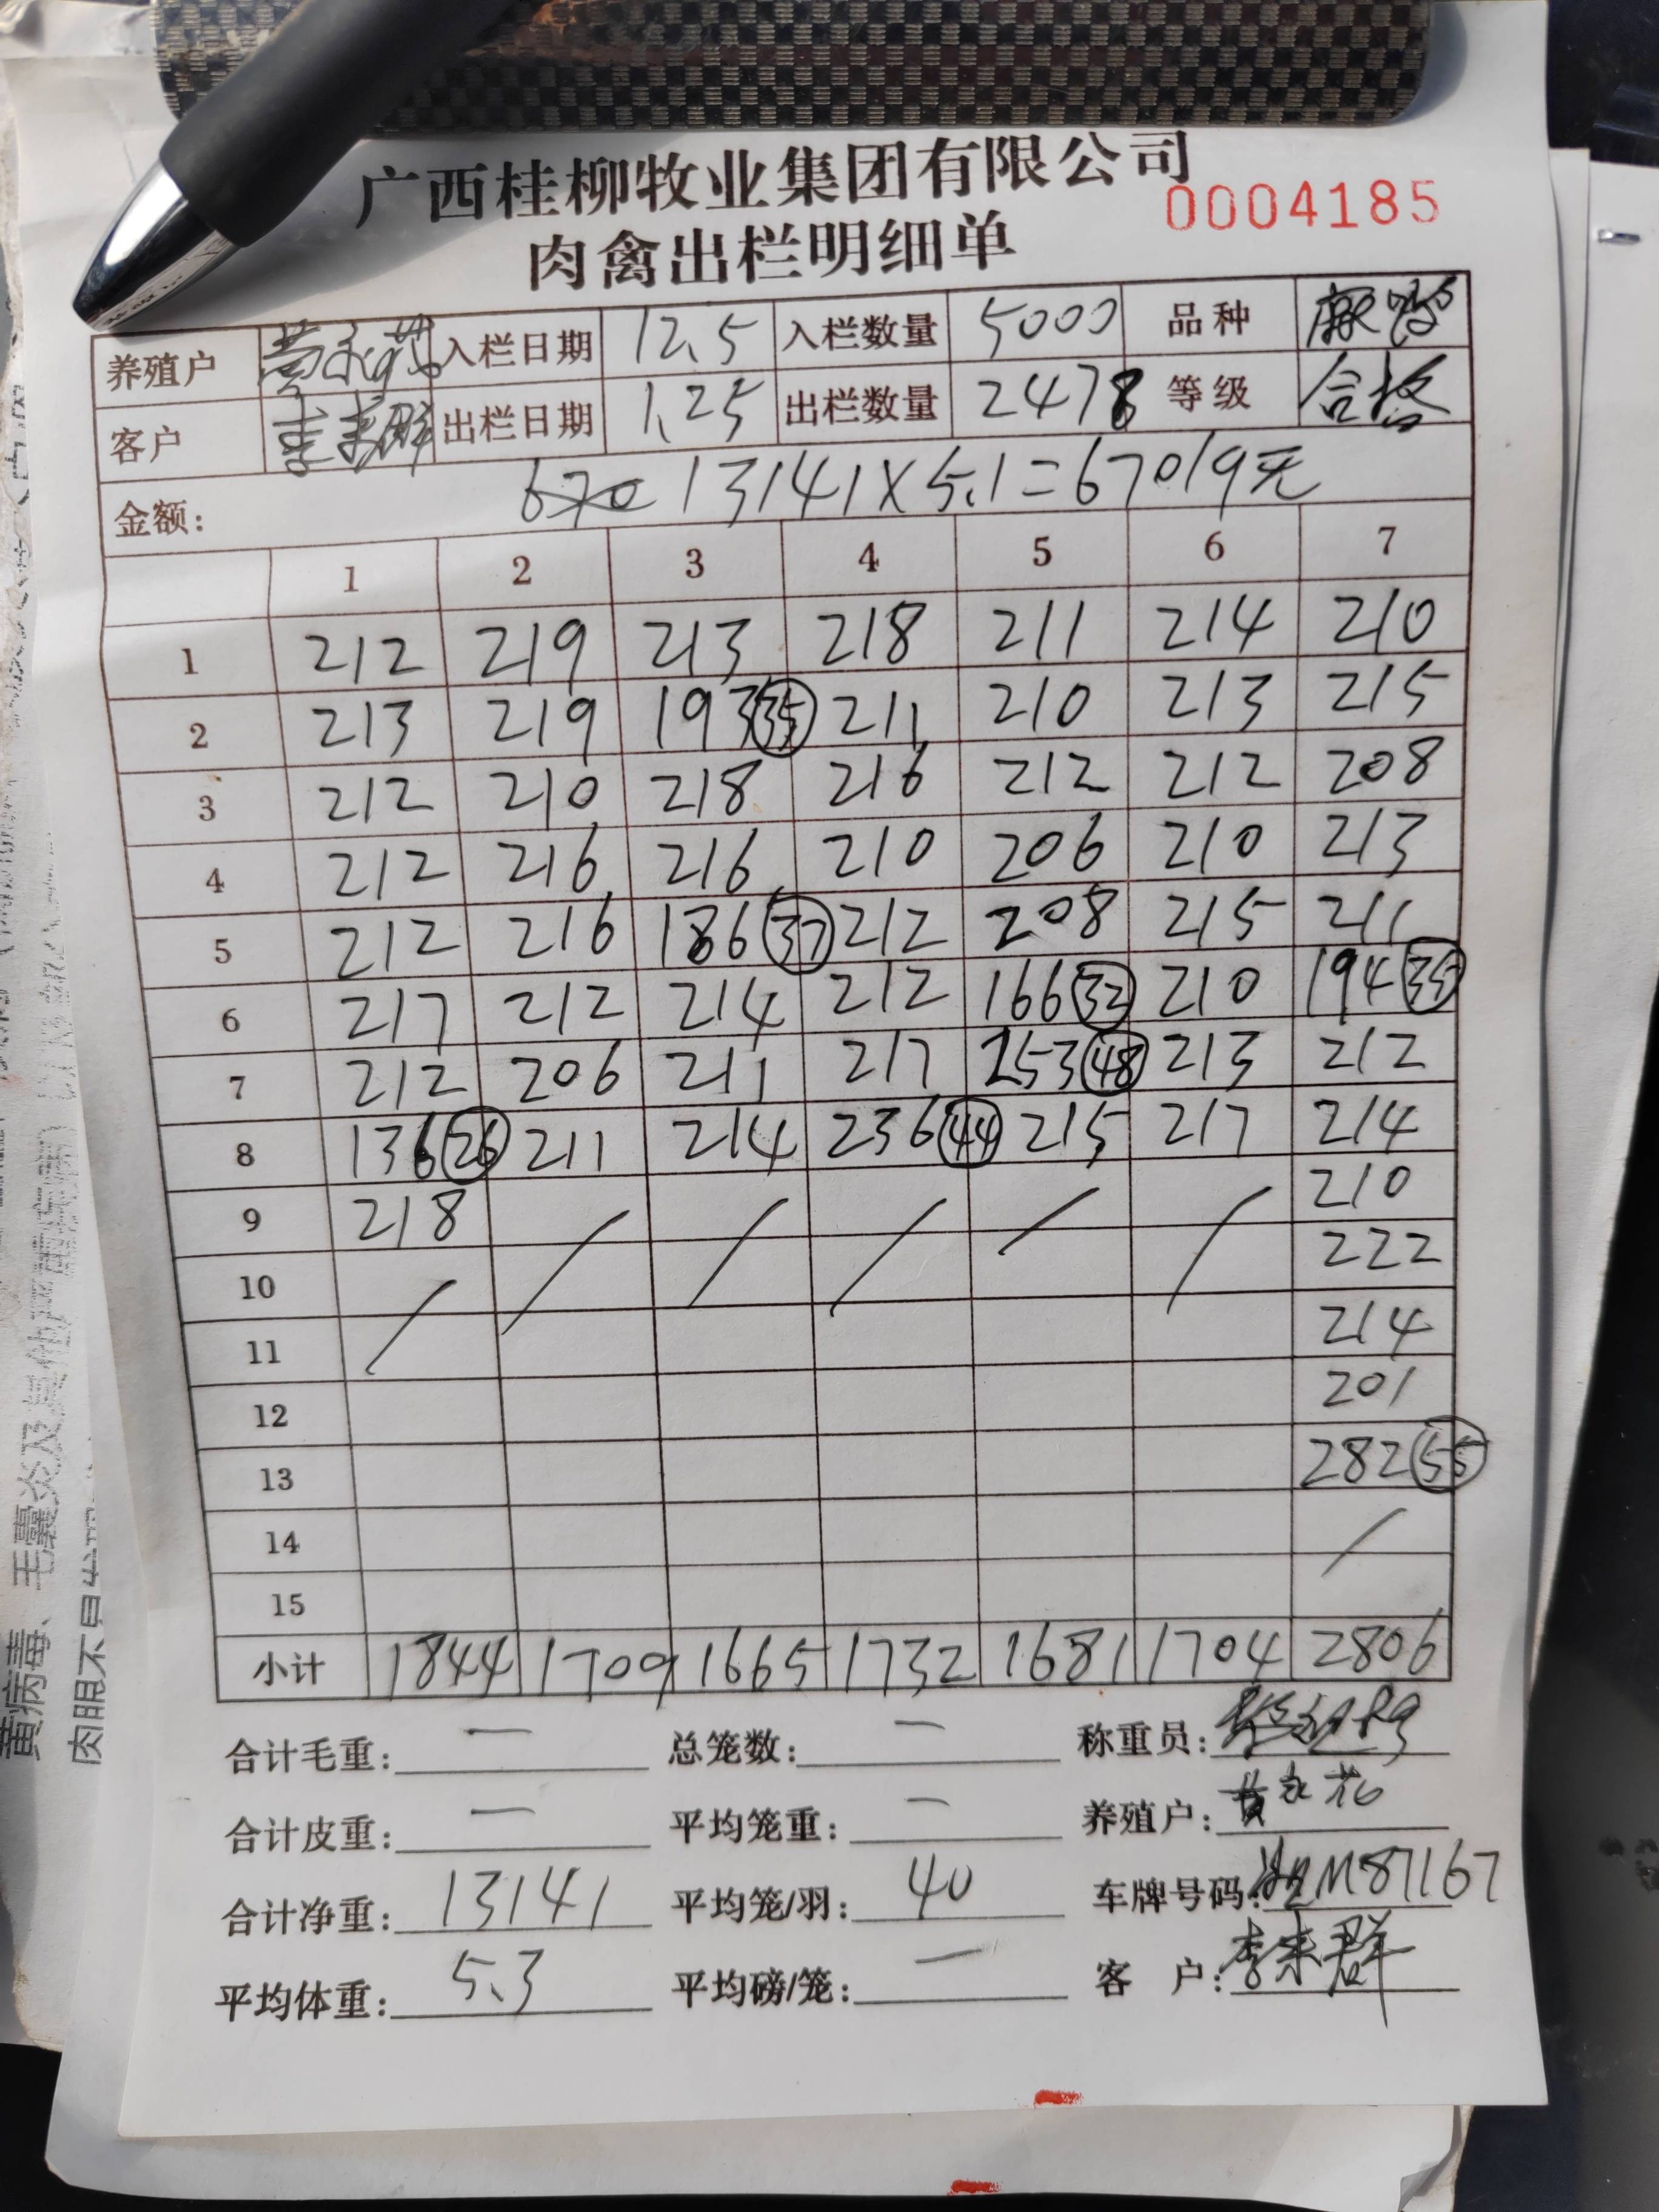 广西桂柳牧业集团有限公司
0004185
肉禽出栏明细单
养殖户 入栏日期 12.5 入栏数量 5000 品种 麻鸭
客户 李来群 出栏日期 1.25 出栏数量 2478 等级 合格
金额: 13141×5.1=67019元
1 2 3 4 5 6 7
1 212 219 213 218 211 214 210
2 213 219 193 35 211 210 213 215
3 212 210 218 216 212 212 208
4 212 216 216 210 206 210 213
5 212 216 186 37 212 208 215 211
6 217 212 214 212 166 32 210 194 35
7 212 206 211 217 253 48 213 212
8 136 26 211 214 236 44 215 217 214
9 218 / / / / / 210
10 / 222
11 214
12 201
13 282 55
14 /
15
小计 1844 1709 1665 1732 1681 1704 2806
合计毛重: 一 总笼数: 一 称重员:
合计皮重: 一 平均笼重: 一 养殖户: 黄永花
合计净重: 13141 平均笼/羽: 40 车牌号码: M87167
平均体重: 5.3 平均磅/笼: 一 客 户: 李来群
黄病毒、毛囊炎及其他